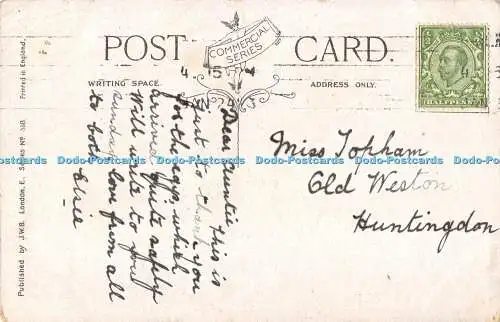 POST CARD.
COMMERCIAL
SERIES
WRITING SPACE.
ADDRESS ONLY.
HALFPENNY
4.15
Dear Auntie This is
just to thank you
for the eggs, which
arrived quite safely
Will write to you
sunday, love from all
to both Elsie
Miss Topham
Old Weston
Huntingdon
Printed in England.
Published by J.W.B. London, E.
Dodo-Postcards Dodo-Postcards Dodo-Postcards Dodo-Postcards Dodo-Postcards Dodo-Postcards Dodo-Postcards